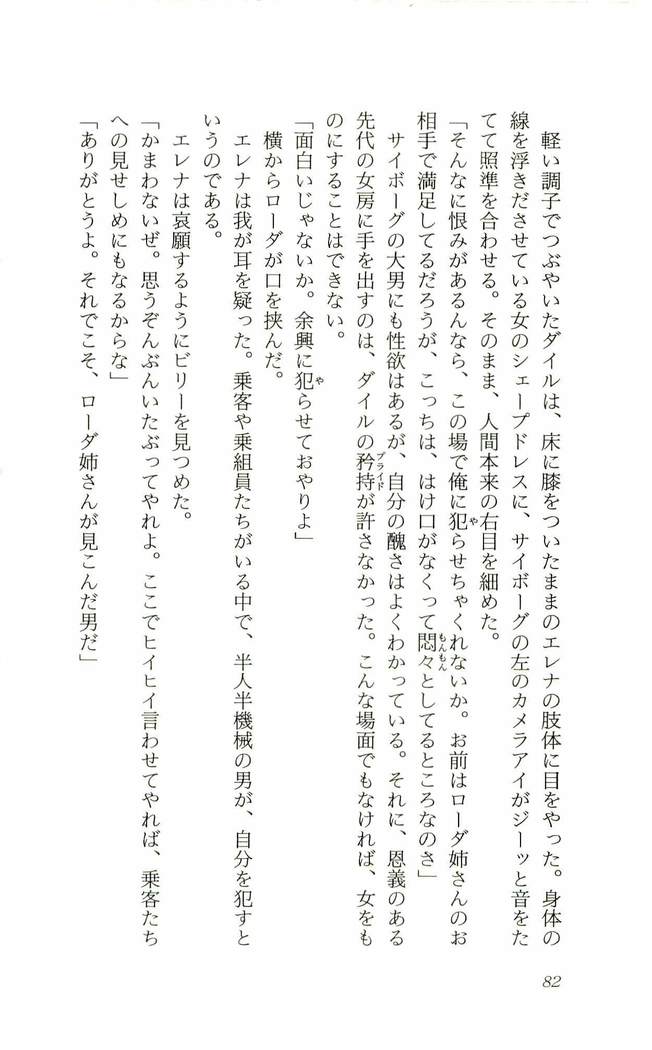 軽い調子でつぶやいたダイルは、床に膝をついたままのエレナの肢体に目をやった。身体の
線を浮きださせている女のシェープドレスに、サイボーグの左のカメラアイがジーッと音をた
てて照準を合わせる。そのまま、人間本来の右目を細めた。
「そんなに恨みがあるんなら、この場で俺に犯らせちゃくれないか。お前はローダ姉さんのお
相手で満足してるだろうが、こっちは、はけ口がなくって悶々としてるところなのさ」
サイボーグの大男にも性欲はあるが、自分の醜さはよくわかっている。それに、恩義のある
先代の女房に手を出すのは、ダイルの矜持が許さなかった。こんな場面でもなければ、女をも
のにすることはできない。
「面白いじゃないか。余興に犯らせておやりよ」
横からローダが口を挟んだ。
エレナは我が耳を疑った。乗客や乗組員たちがいる中で、半人半機械の男が、自分を犯すと
いうのである。
エレナは哀願するようにビリーを見つめた。
「かまわないぜ。思うぞんぶんいたぶってやれよ。ここでヒイヒイ言わせてやれば、乗客たち
への見せしめにもなるからな」
「ありがとうよ。それでこそ、ローダ姉さんが見こんだ男だ」
82